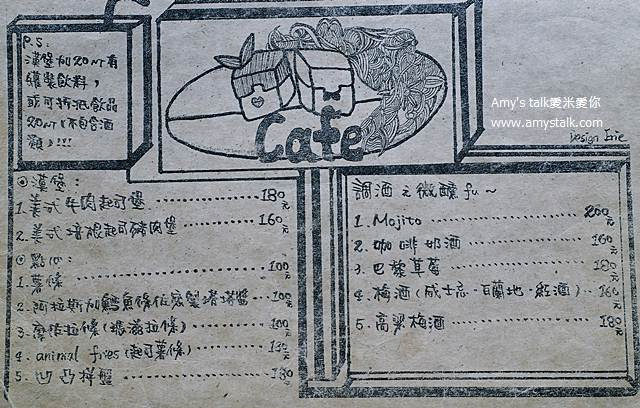 P.S.
漢堡加20元有
罐裝飲料，
或可折抵飲品
20元(不包含酒
類)!!!
Cafe
Amy's talk愛米愛你
www.amystalk.com
Design Irie
◎漢堡：
1.美式牛肉起司堡 180元
2.美式培根起司豬肉堡 160元
◎點心：
1.薯條 100元
2.阿拉斯加鱈魚條佐 塔塔醬 100元
3. 拉條( 拉條) 100元
4. animal fries(起司薯條) 130元
5. 凹凸拼盤 180元
調酒之微醺 fu~
1. Mojito 200元
2. 咖啡奶酒 160元
3. 巴黎草莓 180元
4. 梅酒(威士忌·白蘭地·紅酒) 160元
5. 高粱梅酒 180元